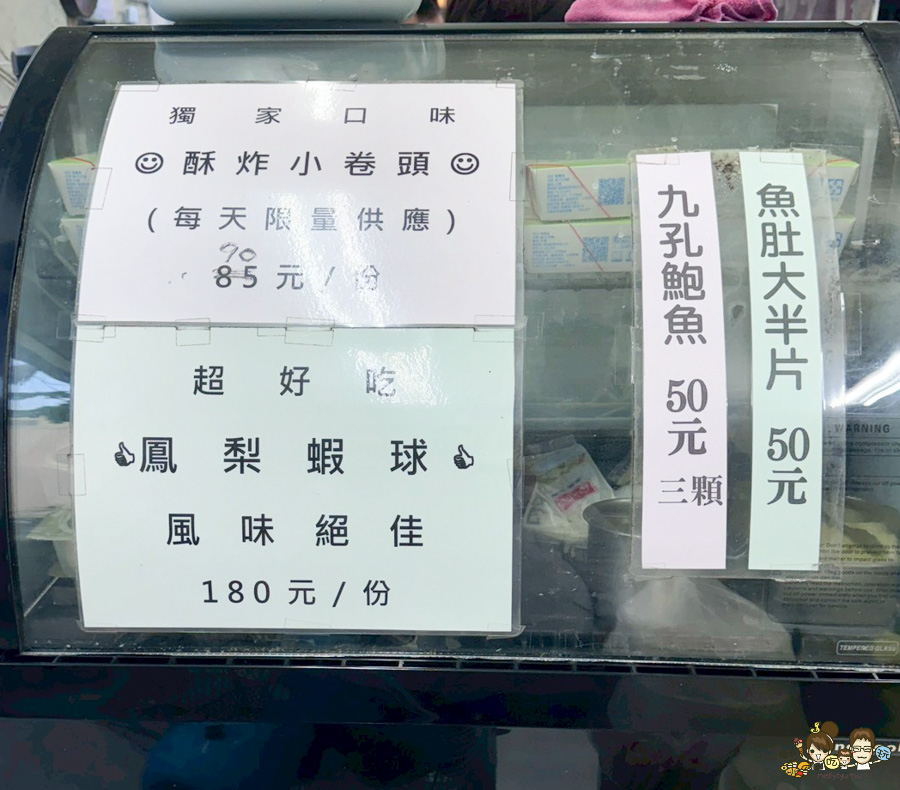 獨家口味
酥炸小卷頭
(每天限量供應)
90
85元/份
超好吃
鳳梨蝦球
風味絕佳
180元/份
九孔鮑魚 50元
三顆
魚肚大半片 50元
WARNING
TEMPERED GLASS